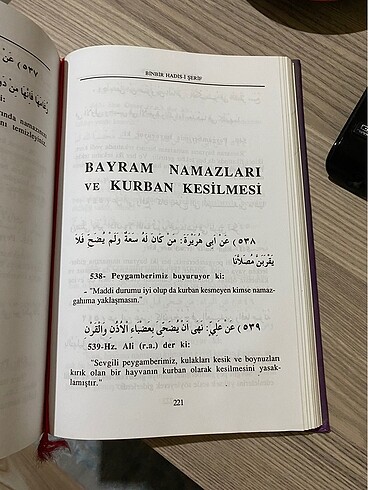 ٥٣٧) عَنْ
رُعَامَهَا فَإِنَّهَا مِنْ دَو
ki:
arında namazınızı
nı temizleyiniz.
BİNBİR HADİS-İ ŞERİF
BAYRAM NAMAZLARI
VE KURBAN KESİLMESİ
٥٣٨) عَنْ اَبِى هُرَيْرَةَ: مَنْ كَانَ لَهُ سَعَةٌ وَلَمْ يُضَحِّ فَلَا
يَقْرَبَنَّ مُصَلَّانَا
538- Peygamberimiz buyuruyor ki:
- "Maddi durumu iyi olup da kurban kesmeyen kimse namaz-
gahıma yaklaşmasın."
٥٣٩) عَنْ عَلِيٍّ: نَهَى اَنْ يُضَحَّى بِعَضْبَاءِ الْاُذُنِ وَالْقَرْنِ
539-Hz. Ali (r.a.) der ki:
"Sevgili peygamberimiz, kulakları kesik ve boynuzları
kırık olan bir hayvanın kurban olarak kesilmesini yasak-
lamıştır."
221